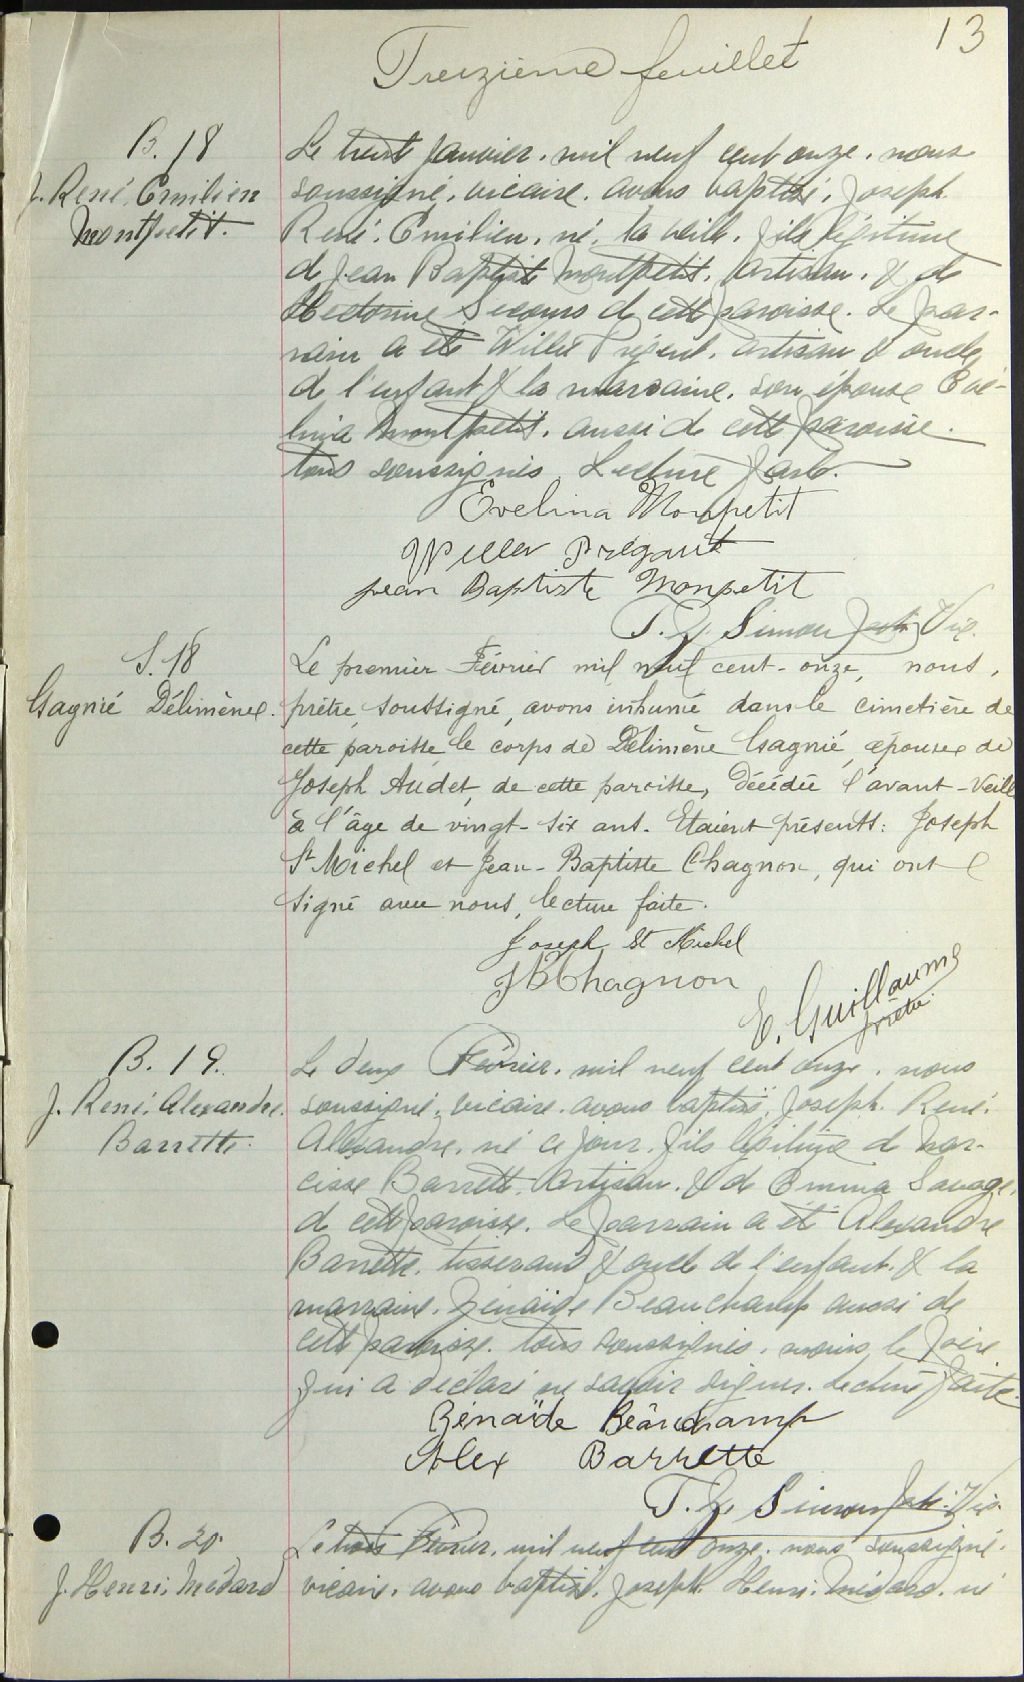 13
Treizième feuillet
B. 18
J. René Emilien
Montpetit.
Le trent Janvier, mil neuf cent onze, nous
soussigné, vicaire, avons baptisé, Joseph
René, Emilien, né, la veille, fils légitime
de Jean Baptiste Montpetit, artisan, & de
de cette paroisse. Le par-
rain a été Willie Prégent, artisan & oncle
de l'enfant & la marraine, son épouse Evé-
lina Montpetit, aussi de cette paroisse.
tous soussignés. Lecture faite.
Evelina Monpetit
Willer Prégant
Jean Baptiste Monpetit
T. Z. Simon Ptr. Vic.
S. 18
Gagnié Délimène.
Le premier Février mil neuf cent-onze, nous,
prêtre, soussigné, avons inhumé dans le cimetière de
cette paroisse, le corps de Délimène Gagnié, épouse de
Joseph Audet, de cette paroisse, décédée l'avant-veille
à l'âge de vingt-six ans. Etaient présents: Joseph
St Michel et Jean-Baptiste Chagnon, qui ont
signé avec nous, lecture faite.
Joseph St Michel
JBChagnon
E. Guillaume
prêtre.
B. 19.
J. René Alexandre
Barrette.
Le deux Février, mil neuf cent onze, nous
soussigné, vicaire, avons baptisé, Joseph René,
Alexandre, né ce jour, fils légitime de Nar-
cisse Barrette, artisan, & de Emma Savage,
de cette paroisse. Le parrain a été Alexandre
Barrette, tisserand & oncle de l'enfant, & la
marraine, Zénaïde Beauchamp aussi de
cette paroisse, tous soussignés, moins le père
qui a déclaré ne savoir signer. Lecture faite.
Zénaïde Beauchamp
Alex Barrette
T. Z. Simon Ptr. Vic.
B. 20.
J. Henri, Médard
Le trois Février, mil neuf cent onze, nous soussigné,
vicaire, avons baptisé, Joseph Henri, Médard, né